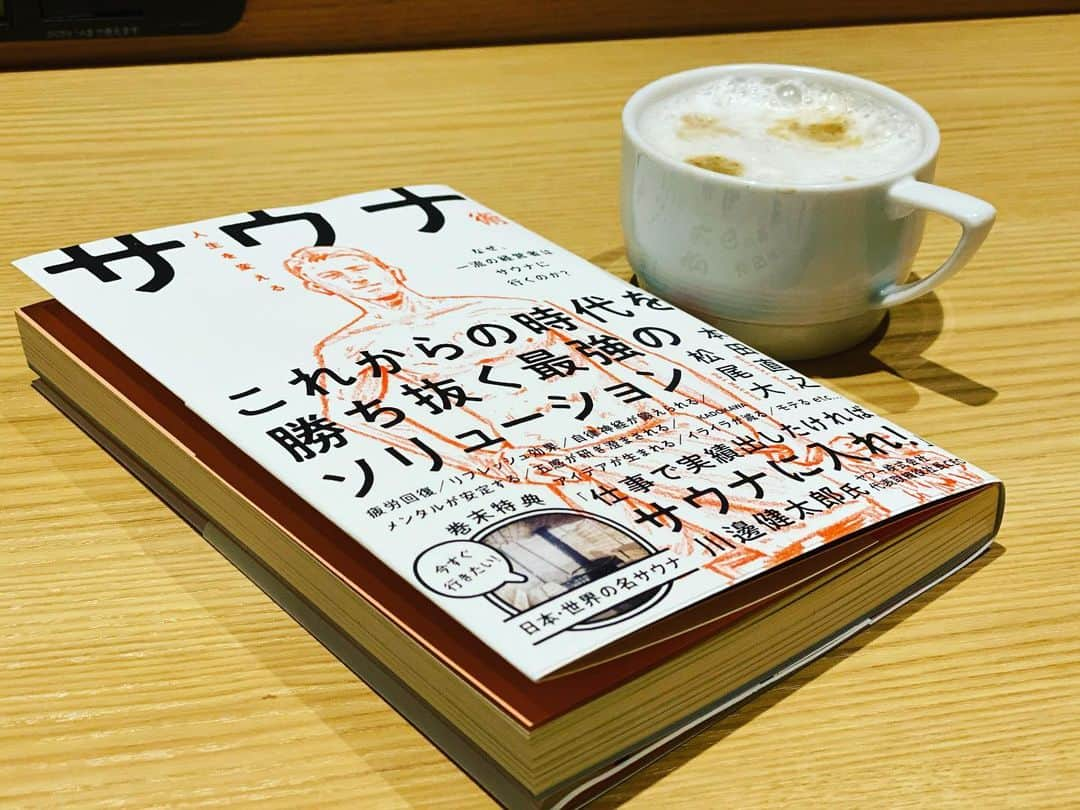 人生を変える
サウナ術
なぜ、
一流の経営者は
サウナに
行くのか？
これからの時代を
勝ち抜く最強の
ソリューション
本田直之
松尾大
KADOKAWA
疲労回復／リフレッシュ効果／自律神経が鍛えられる／
メンタルが安定する／五感が研ぎ澄まされる／
アイデアが生まれる／イライラが減る／モテる etc...
「仕事で実績出したければ
サウナに入れ！」
川邊健太郎氏
ヤフー株式会社
巻末特典
今すぐ
行きたい！
日本・世界の名サウナ